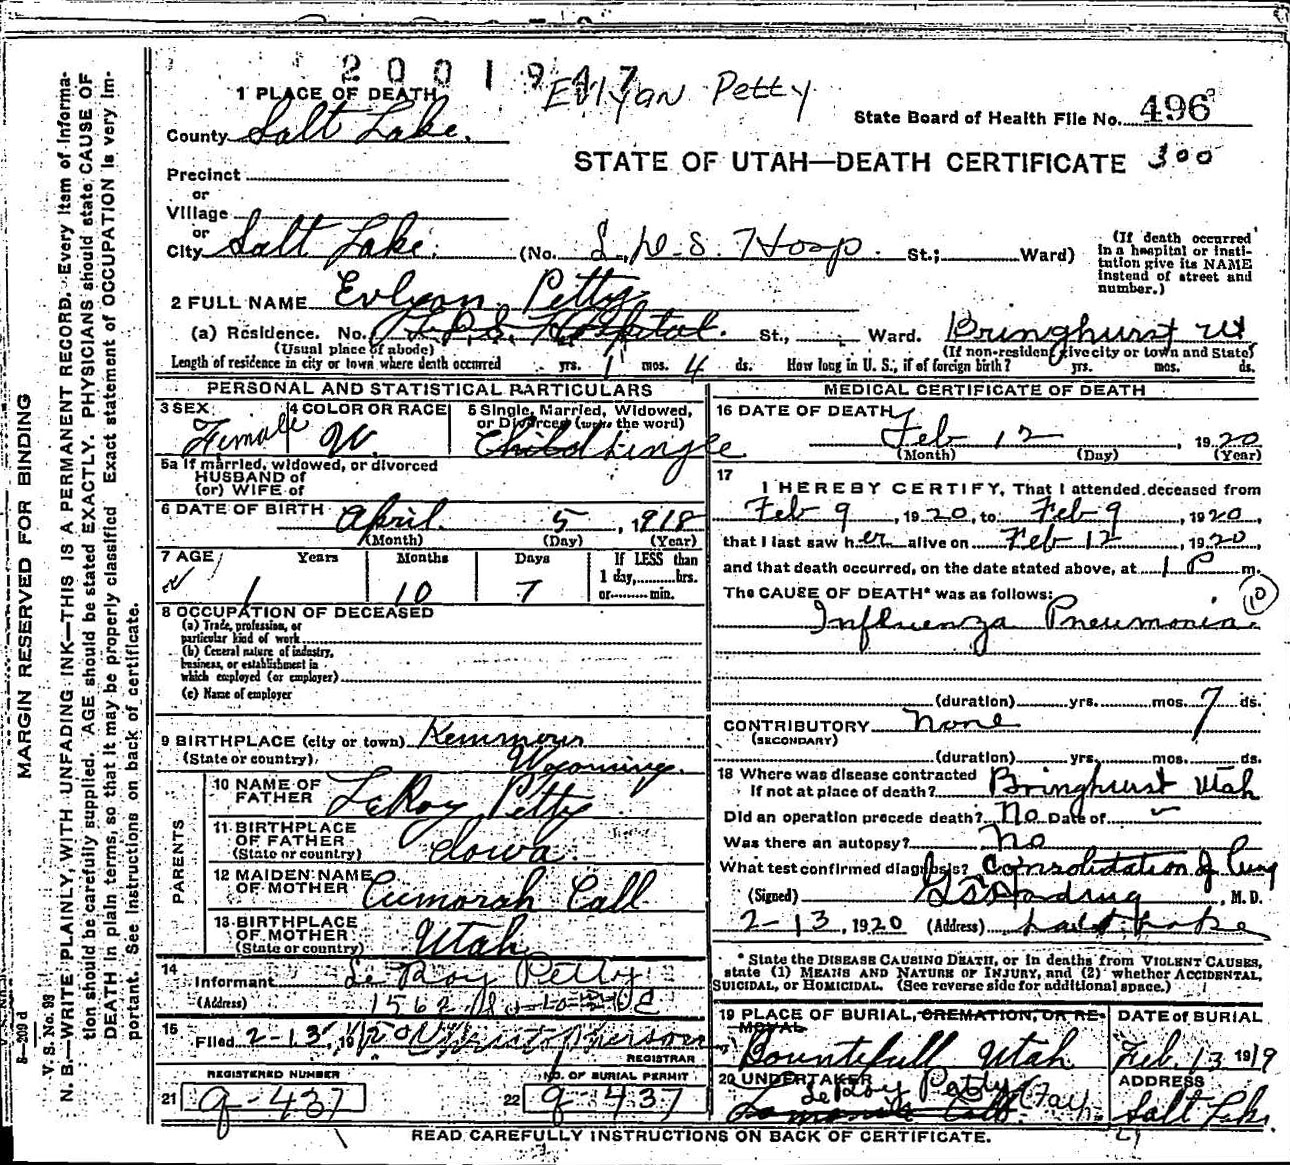 2001947
Evlyan Petty
1 PLACE OF DEATH
County Salt Lake.
State Board of Health File No. 496
STATE OF UTAH—DEATH CERTIFICATE 300
Precinct
or
Village
or
City Salt Lake. (No. L.D.S. Hosp. St.; Ward)
(If death occurred in a hospital or institution give its NAME instead of street and number.)
2 FULL NAME Evlyan Petty
(a) Residence. No. L.D.S. Hospital. St., Ward. Bringhurst Ut
(Usual place of abode) (If non-resident give city or town and State)
Length of residence in city or town where death occurred yrs. 1 mos. 4 ds. How long in U. S., if of foreign birth? yrs. mos. ds.
PERSONAL AND STATISTICAL PARTICULARS
3 SEX Female
4 COLOR OR RACE W.
5 Single, Married, Widowed, or Divorced (write the word)
Child Single
5a If married, widowed, or divorced
HUSBAND of
(or) WIFE of
6 DATE OF BIRTH April 5, 1918
(Month) (Day) (Year)
7 AGE Years Months Days If LESS than
1 10 7 1 day, hrs.
or min.
8 OCCUPATION OF DECEASED
(a) Trade, profession, or
particular kind of work
(b) General nature of industry,
business, or establishment in
which employed (or employer)
(c) Name of employer
9 BIRTHPLACE (city or town)
(State or country) Wyoming.
PARENTS
10 NAME OF FATHER LeRoy Petty
11 BIRTHPLACE OF FATHER (State or country) Iowa.
12 MAIDEN NAME OF MOTHER Cumorah Call
13 BIRTHPLACE OF MOTHER (State or country) Utah
14 Informant Le Roy Petty
(Address) 1562
15 Filed 2-13, 1920
REGISTRAR
REGISTERED NUMBER
21 g-437
NO. OF BURIAL PERMIT
22 g-437
MEDICAL CERTIFICATE OF DEATH
16 DATE OF DEATH
Feb 12, 1920
(Month) (Day) (Year)
17 I HEREBY CERTIFY, That I attended deceased from
Feb 9, 1920, to Feb 9, 1920,
that I last saw her alive on Feb 12, 1920,
and that death occurred, on the date stated above, at 1 P m.
The CAUSE OF DEATH* was as follows: 10
Influenza Pneumonia.
(duration) yrs. mos. 7 ds.
CONTRIBUTORY none
(SECONDARY)
(duration) yrs. mos. ds.
18 Where was disease contracted
If not at place of death? Bringhurst Utah
Did an operation precede death? No Date of
Was there an autopsy? No
What test confirmed diagnosis? Consolidation of lung
(Signed) , M. D.
2-13, 1920 (Address) Salt Lake
* State the DISEASE CAUSING DEATH, or in deaths from VIOLENT CAUSES,
state (1) MEANS AND NATURE OF INJURY, and (2) whether ACCIDENTAL,
SUICIDAL, or HOMICIDAL. (See reverse side for additional space.)
19 PLACE OF BURIAL, CREMATION, OR REMOVAL
Bountifull Utah
DATE of BURIAL
Feb. 13 1919
20 UNDERTAKER
LeRoy Petty
ADDRESS
Salt Lake.
READ CAREFULLY INSTRUCTIONS ON BACK OF CERTIFICATE.
MARGIN RESERVED FOR BINDING
N. B.—WRITE PLAINLY, WITH UNFADING INK—THIS IS A PERMANENT RECORD. Every item of information should be carefully supplied. AGE should be stated EXACTLY. PHYSICIANS should state CAUSE OF DEATH in plain terms, so that it may be properly classified. Exact statement of OCCUPATION is very important. See instructions on back of certificate.
V. S. No. 98
8—209 d